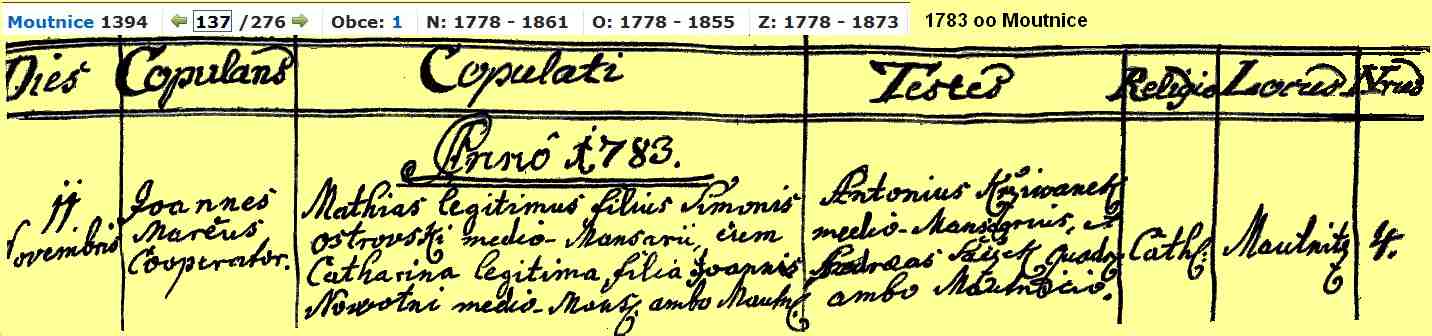 Moutnice 1394 137 /276 Obce: 1 N: 1778 - 1861 O: 1778 - 1855 Z: 1778 - 1873 1783 oo Moutnice
Dies Copulans Copulati Testes Religio Locus Nrus
Anno 1783.
11 Novembris
Joannes
Marcus
Cooperator.
Mathias legitimus filius Simonis
Ostrovski medio-Mansarii, cum
Catharina legitima filia Joannis
Nowotni medio-Mans. ambo Mautn.
Antonius Krziwanek
medio-Mansarius, et
Andreas Quadr.
ambo
Cath.
Mautnitz
4.